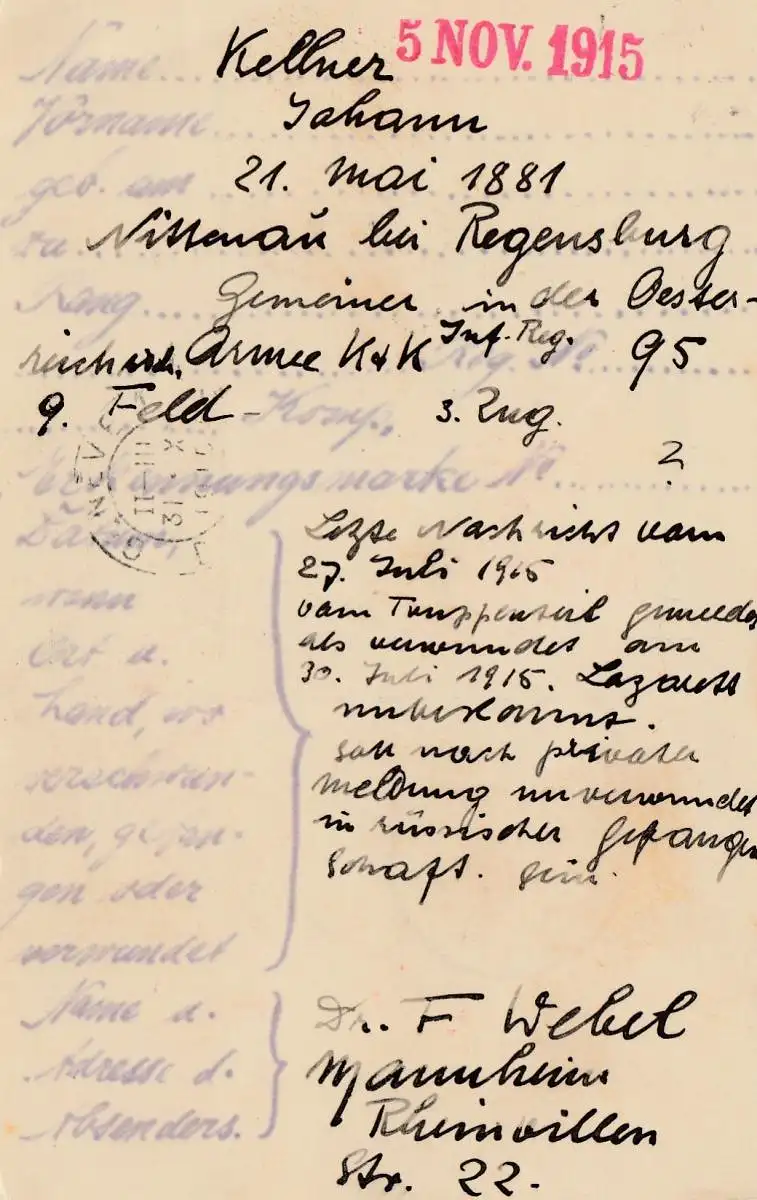 Name Kellner 5 NOV. 1915
Vorname Johann
geb. am 21. Mai 1881
zu Nittenau bei Regensburg
Rang Gemeiner in der Oester-
reichisch. Armee K+K Inf. Reg. Reg. No 95
9. Feld - Komp. 3. Zug.
Erkennungsmarke No ?
GENEVE
II-III
31 X
Datum, Letzte Nachricht vom
27. Juli 1915
wann vom Truppenteil gemeldet
Ort u. als verwundet am
30. Juli 1915. Lazarett
Land, wo unbekannt.
soll nach privater
verschwun- Meldung unverwundet
den, gefan- in russischer Gefangen
gen oder schaft. sein.
verwundet
Name u. Dr. F Webel
Adresse d. Mannheim
Absenders. Rheinvillen
Str. 22.